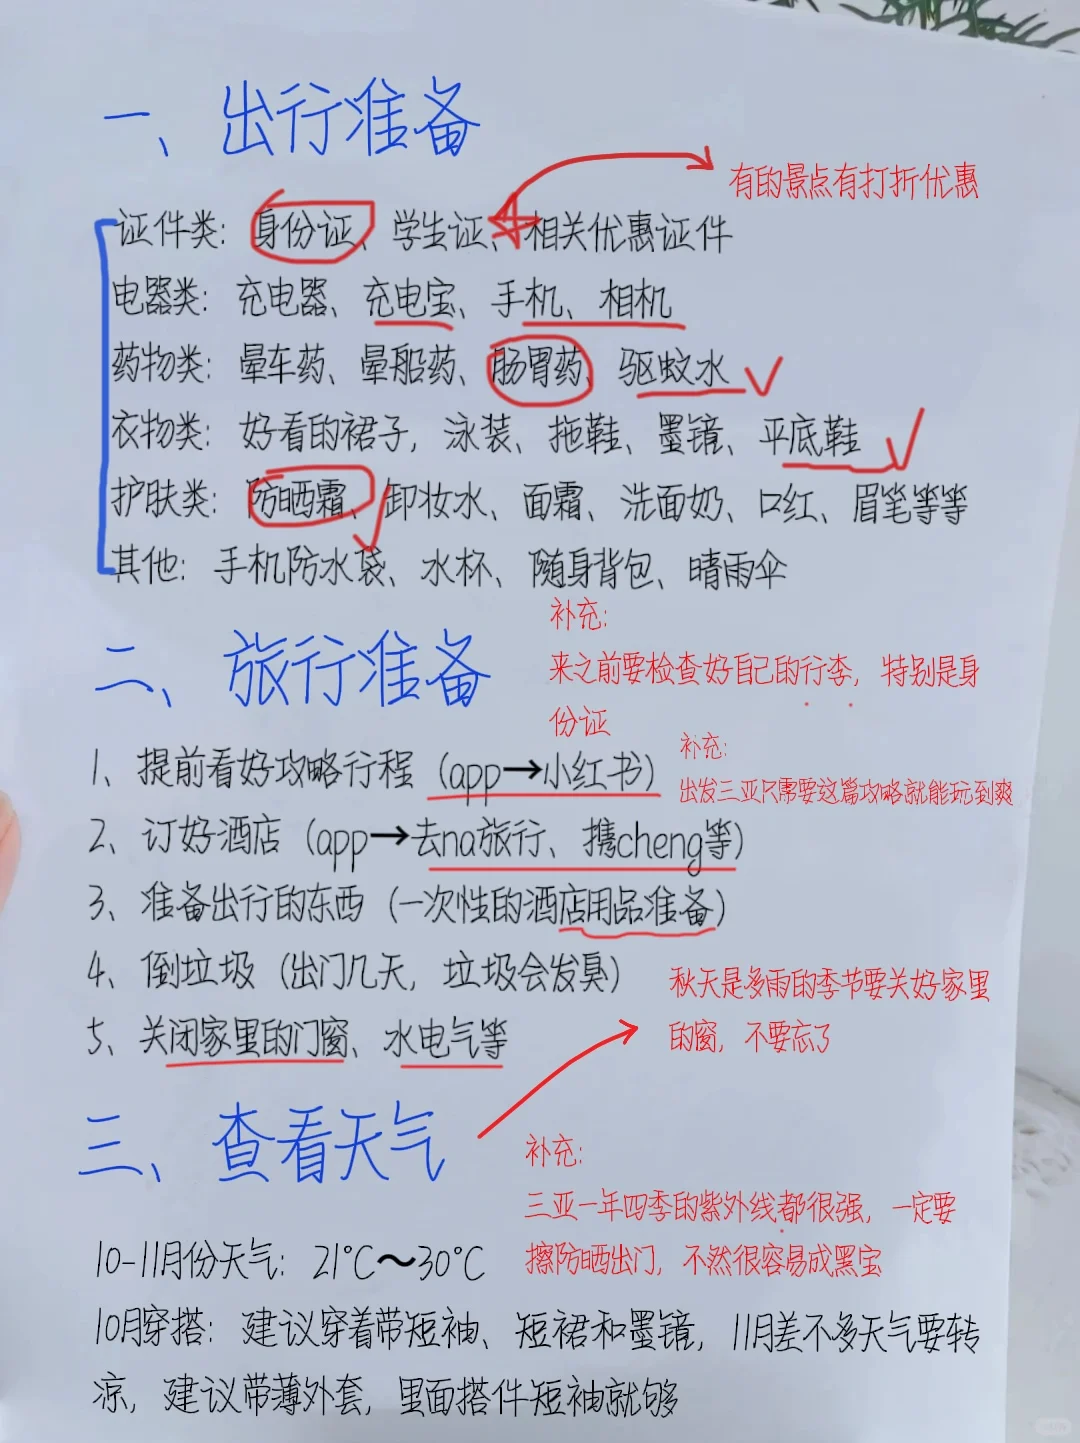 一、出行准备
有的景点有打折优惠
证件类：身份证、学生证、相关优惠证件
电器类：充电器、充电宝、手机、相机
药物类：晕车药、晕船药、肠胃药、驱蚊水
衣物类：好看的裙子，泳装、拖鞋、墨镜、平底鞋
护肤类：防晒霜、卸妆水、面霜、洗面奶、口红、眉笔等等
其他：手机防水袋、水杯、随身背包、晴雨伞
补充：
来之前要检查好自己的行李，特别是身
份证
二、旅行准备
补充：
出发三亚只需要这篇攻略就能玩到爽
1、提前看好攻略行程（app→小红书）
2、订好酒店（app→去na旅行、携cheng等）
3、准备出行的东西（一次性的酒店用品准备）
4、倒垃圾（出门几天，垃圾会发臭）
5、关闭家里的门窗、水电气等
秋天是多雨的季节要关好家里
的窗，不要忘了
三、查看天气
补充：
三亚一年四季的紫外线都很强，一定要
擦防晒出门，不然很容易成黑宝
10-11月份天气：21°C～30°C
10月穿搭：建议穿着带短袖、短裙和墨镜，11月差不多天气要转
凉，建议带薄外套，里面搭件短袖就够